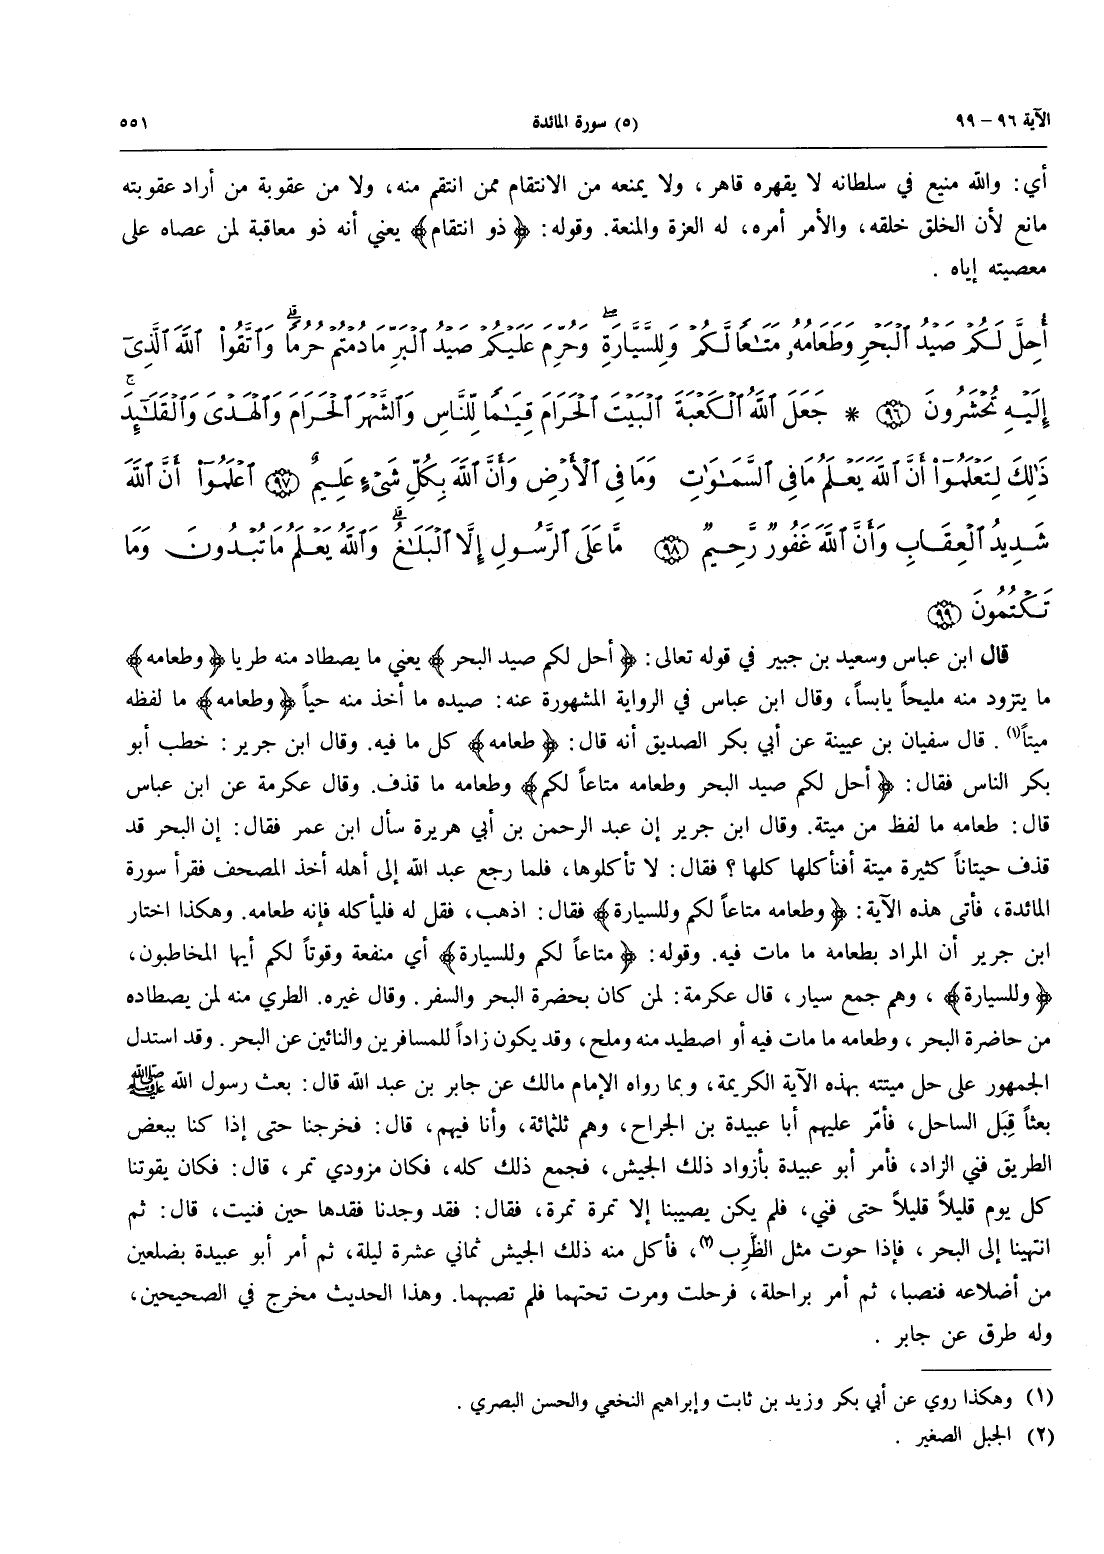 الآية ٩٦ - ٩٩ (٥) سورة المائدة ٥٥١
أي: والله منيع في سلطانه لا يقهره قاهر، ولا يمنعه من الانتقام ممن انتقم منه، ولا من عقوبة من أراد عقوبته
مانع لأن الخلق خلقه، والأمر أمره، له العزة والمنعة. وقوله: ﴿ذو انتقام﴾ يعني أنه ذو معاقبة لمن عصاه على
معصيته إياه .
أُحِلَّ لَكُمْ صَيْدُ ٱلْبَحْرِ وَطَعَامُهُۥ مَتَـٰعًا لَّكُمْ وَلِلسَّيَّارَةِ ۖ وَحُرِّمَ عَلَيْكُمْ صَيْدُ ٱلْبَرِّ مَا دُمْتُمْ حُرُمًا ۗ وَٱتَّقُوا۟ ٱللَّهَ ٱلَّذِىٓ
إِلَيْهِ تُحْشَرُونَ ﴿٩٦﴾ * جَعَلَ ٱللَّهُ ٱلْكَعْبَةَ ٱلْبَيْتَ ٱلْحَرَامَ قِيَـٰمًا لِّلنَّاسِ وَٱلشَّهْرَ ٱلْحَرَامَ وَٱلْهَدْىَ وَٱلْقَلَـٰٓئِدَ ۚ
ذَٰلِكَ لِتَعْلَمُوٓا۟ أَنَّ ٱللَّهَ يَعْلَمُ مَا فِى ٱلسَّمَـٰوَٰتِ وَمَا فِى ٱلْأَرْضِ وَأَنَّ ٱللَّهَ بِكُلِّ شَىْءٍ عَلِيمٌ ﴿٩٧﴾ ٱعْلَمُوٓا۟ أَنَّ ٱللَّهَ
شَدِيدُ ٱلْعِقَابِ وَأَنَّ ٱللَّهَ غَفُورٌ رَّحِيمٌ ﴿٩٨﴾ مَّا عَلَى ٱلرَّسُولِ إِلَّا ٱلْبَلَـٰغُ ۗ وَٱللَّهُ يَعْلَمُ مَا تُبْدُونَ وَمَا
تَكْتُمُونَ ﴿٩٩﴾
قال ابن عباس وسعيد بن جبير في قوله تعالى: ﴿أحل لكم صيد البحر﴾ يعني ما يصطاد منه طريا ﴿وطعامه﴾
ما يتزود منه مليحاً يابساً، وقال ابن عباس في الرواية المشهورة عنه: صيده ما أخذ منه حياً ﴿وطعامه﴾ ما لفظه
ميتاً(١) . قال سفيان بن عيينة عن أبي بكر الصديق أنه قال: ﴿طعامه﴾ كل ما فيه. وقال ابن جرير: خطب أبو
بكر الناس فقال: ﴿أحل لكم صيد البحر وطعامه متاعاً لكم﴾ وطعامه ما قذف. وقال عكرمة عن ابن عباس
قال: طعامه ما لفظ من ميتة. وقال ابن جرير إن عبد الرحمن بن أبي هريرة سأل ابن عمر فقال: إن البحر قد
قذف حيتاناً كثيرة ميتة أفنأكلها كلها؟ فقال: لا تأكلوها، فلما رجع عبد الله إلى أهله أخذ المصحف فقرأ سورة
المائدة، فأتى هذه الآية: ﴿وطعامه متاعاً لكم وللسيارة﴾ فقال: اذهب، فقل له فليأكله فإنه طعامه. وهكذا اختار
ابن جرير أن المراد بطعامه ما مات فيه. وقوله: ﴿متاعاً لكم وللسيارة﴾ أي منفعة وقوتاً لكم أيها المخاطبون،
﴿وللسيارة﴾ ، وهم جمع سيار، قال عكرمة: لمن كان بحضرة البحر والسفر. وقال غيره. الطري منه لمن يصطاده
من حاضرة البحر، وطعامه ما مات فيه أو اصطيد منه وملح، وقد يكون زاداً للمسافرين والنائين عن البحر. وقد استدل
الجمهور على حل ميتته بهذه الآية الكريمة، وبما رواه الإمام مالك عن جابر بن عبد الله قال: بعث رسول الله ﷺ
بعثاً قِبَل الساحل، فأمّر عليهم أبا عبيدة بن الجراح، وهم ثلثمائة، وأنا فيهم، قال: فخرجنا حتى إذا كنا ببعض
الطريق فني الزاد، فأمر أبو عبيدة بأزواد ذلك الجيش، فجمع ذلك كله، فكان مزودي تمر، قال: فكان يقوتنا
كل يوم قليلاً قليلاً حتى فني، فلم يكن يصيبنا إلا تمرة تمرة، فقال: فقد وجدنا فقدها حين فنيت، قال: ثم
انتهينا إلى البحر، فإذا حوت مثل الظَّرِب(٢)، فأكل منه ذلك الجيش ثماني عشرة ليلة، ثم أمر أبو عبيدة بضلعين
من أضلاعه فنصبا، ثم أمر براحلة، فرحلت ومرت تحتهما فلم تصبهما. وهذا الحديث مخرج في الصحيحين،
وله طرق عن جابر .
(١) وهكذا روي عن أبي بكر وزيد بن ثابت وإبراهيم النخعي والحسن البصري .
(٢) الجبل الصغير .